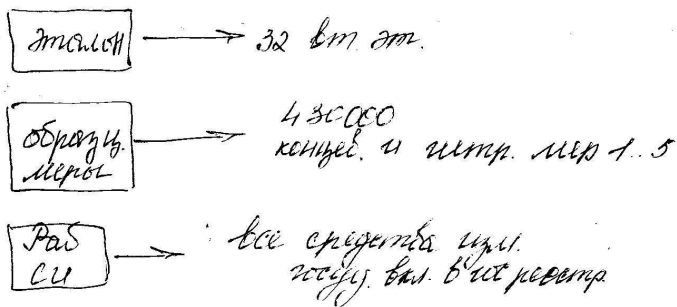 эталон → 32 вт. эт.
образц. меры → 430000
концев. и штр. мер 1..5
Раб СИ → все средства изм.
госуд. вкл. в реестр